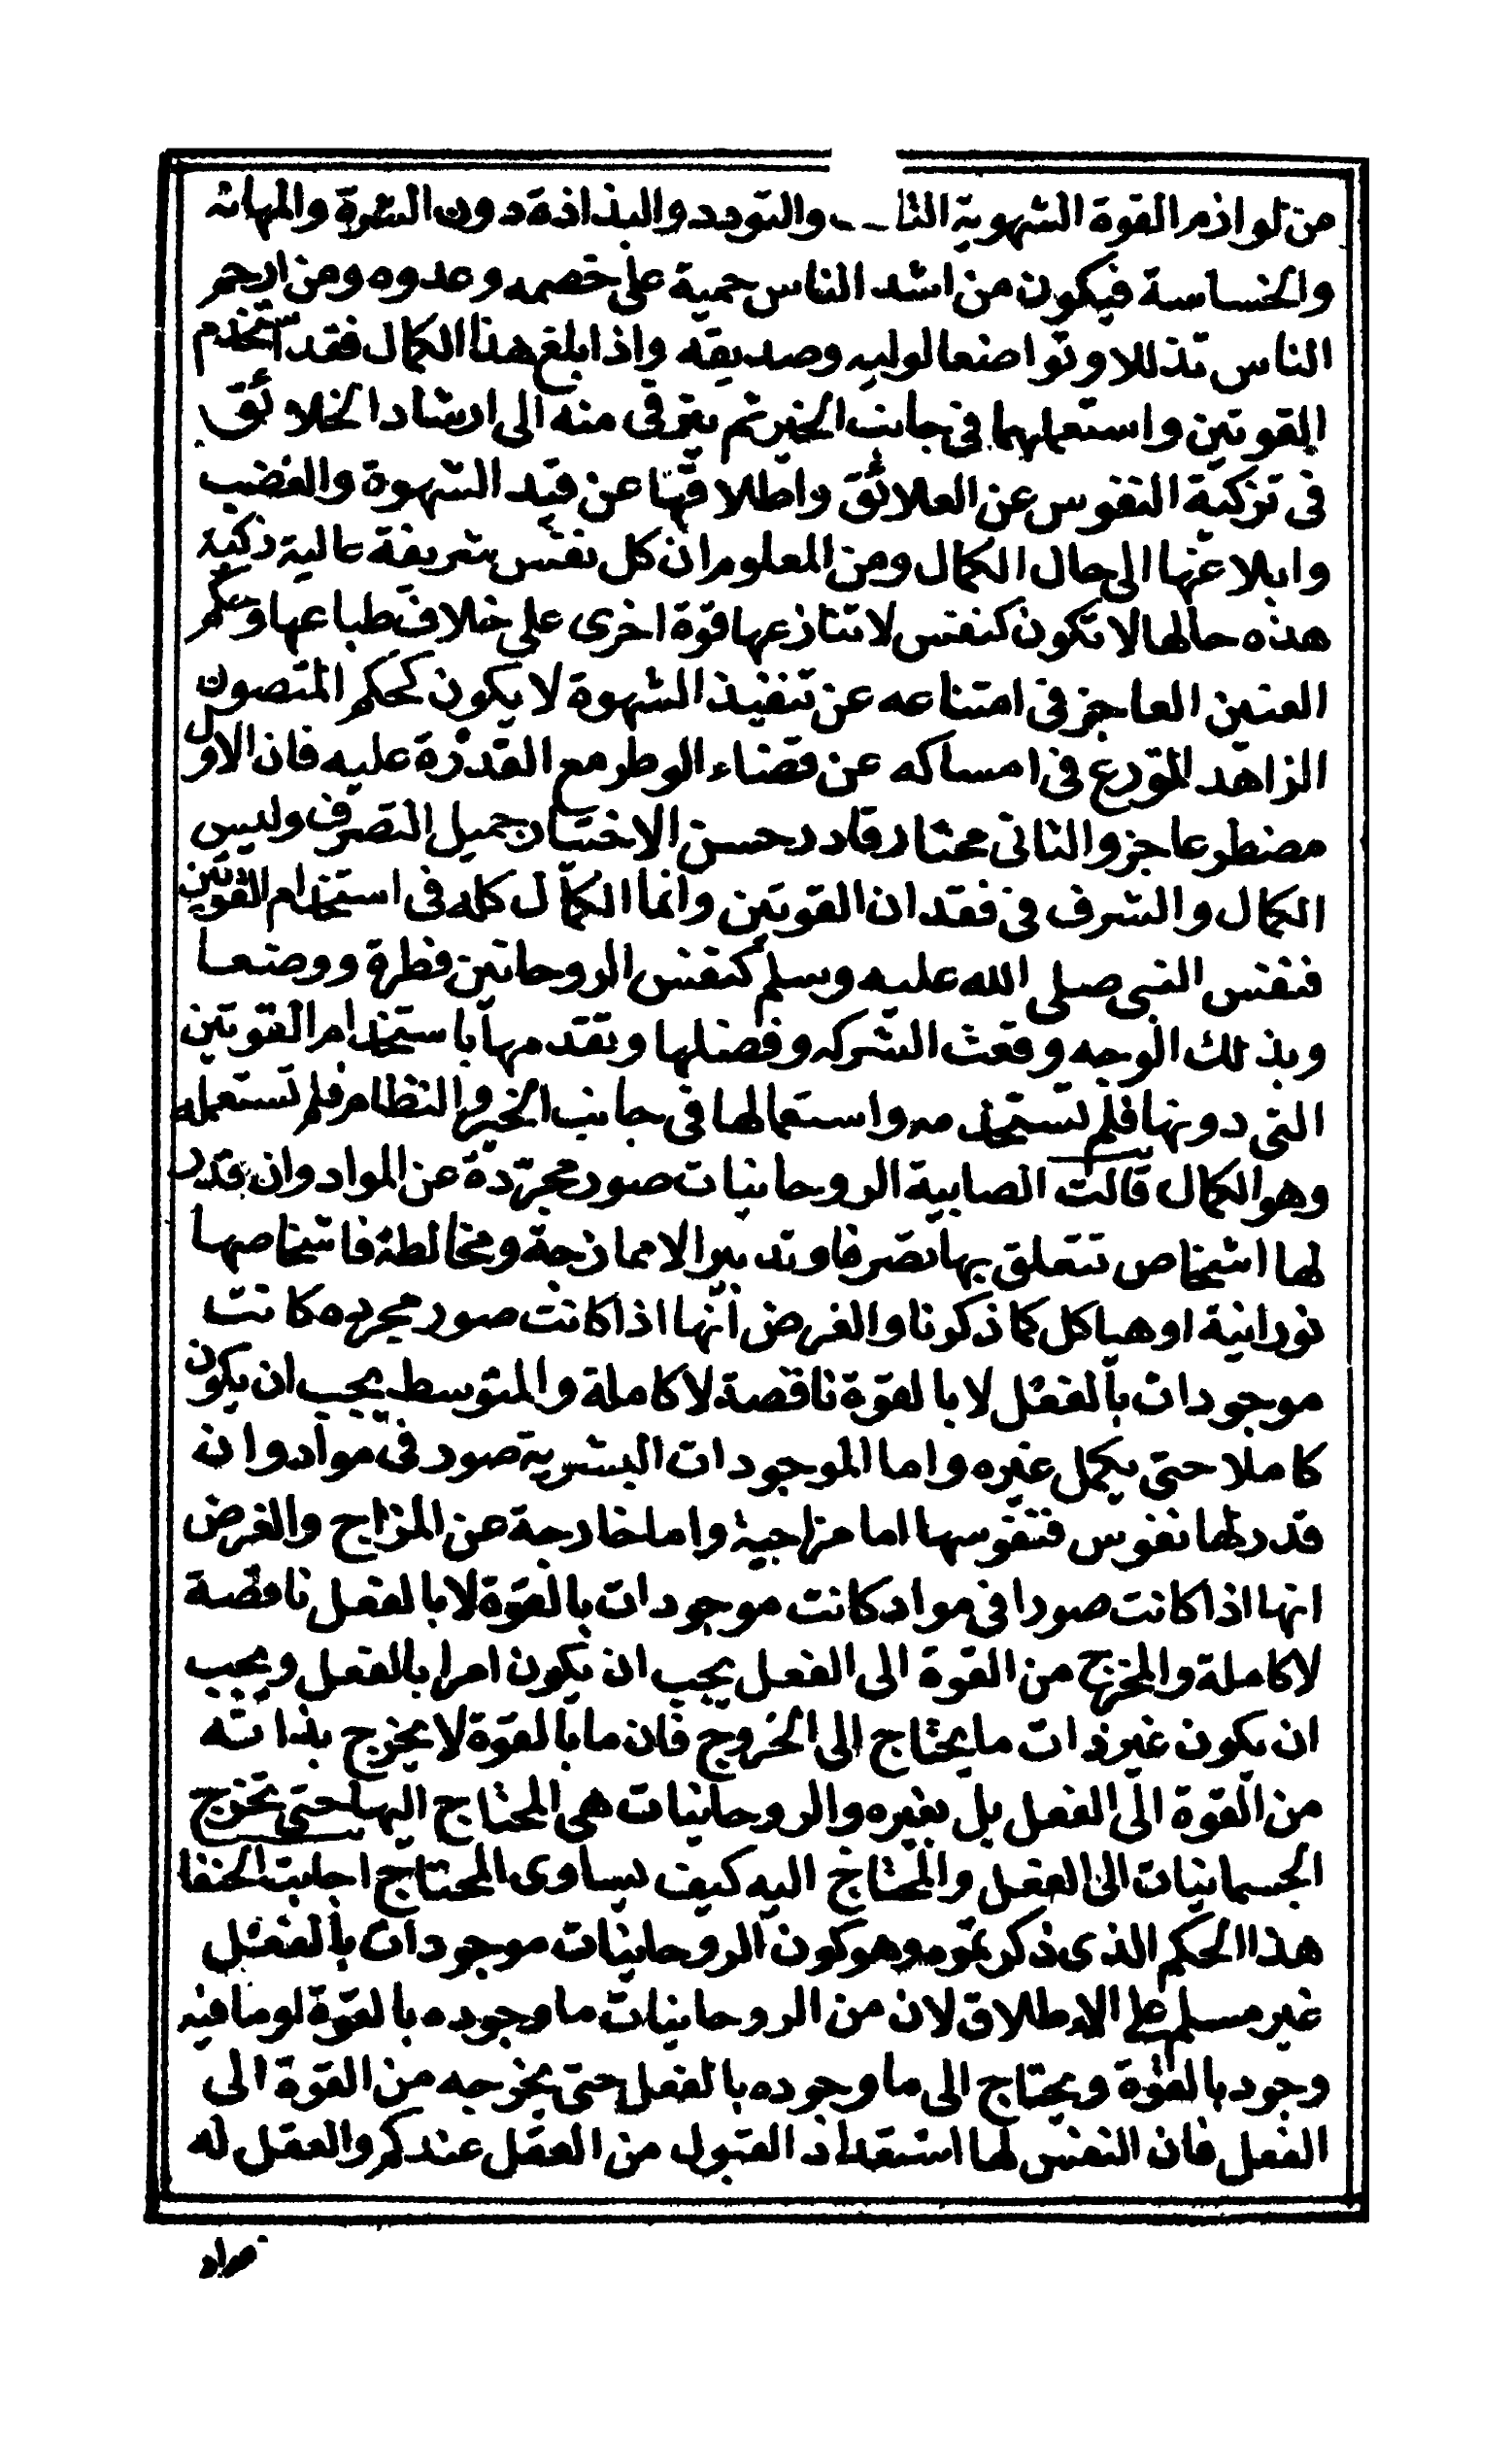 من لوازم القوة الشهوية والتودد والبذاذة دون الشره والمهانه
والخساسة فيكون من اشد الناس حمية على خصمه وعدوه ومن ارحم
الناس تذللا وتواضعا لوليه وصديقه واذا بلغ هذا الكمال فقد استخدم
القوتين واستعملهما فى جانب الخير ثم يترقى منه الى ارشاد الخلائق
فى تزكية النفوس عن العلائق واطلاقها عن قيد الشهوة والغضب
وابلاغها الى حال الكمال ومن المعلوم ان كل نفس شريفة عالية زكية
هذه حالها لا تكون كنفس لا تنازعها قوة اخرى على خلاف طباعها وحكم
العنين العاجز فى امتناعه عن تنفيذ الشهوة لا يكون كحكم المتصون
الزاهد المتورع فى امساكه عن قضاء الوطر مع القدرة عليه فان الاول
مضطر عاجز والثانى مختار قادر حسن الاختيار جميل التصرف وليس
الكمال والشرف فى فقدان القوتين وانما الكمال كله فى استخدام القوتين
فنفس النبى صلى الله عليه وسلم كنفس الروحانين فطرة ووضعا
وبذلك الوجه وقعت الشركه وفضلها وتقدمها باستخدام القوتين
التى دونها فلم تستخدمه واستعمالها فى جانب الخير والنظام فلم تستعمله
وهو الكمال قالت الصابية الروحانيات صور مجردة عن المواد وان قدر
لها اشخاص تتعلق بها تصرفا وتدبيرا لا ممازجة ومخالطة فاشخاصها
نورانية او هياكل كما ذكرنا والغرض انها اذا كانت صور مجرده كانت
موجودات بالفعل لا بالقوة ناقصة لا كاملة والمتوسط يجب ان يكون
كاملا حتى يكمل غيره واما الموجودات البشرية صور فى مواد وان
قدر لها نفوس فنفوسها اما مزاجية واما خارجة عن المزاج والغرض
انها اذا كانت صورا فى مواد كانت موجودات بالقوة لا بالفعل ناقصة
لا كاملة والمخرج من القوة الى الفعل يجب ان يكون امرا بالفعل ويجب
ان يكون غير ذات ما يحتاج الى الخروج فان ما بالقوة لا يخرج بذاته
من القوة الى الفعل بل بغيره والروحانيات هى المحتاج اليها حتى تخرج
الجسمانيات الى الفعل والمحتاج اليه كيف يساوى المحتاج اجابت الحنفا
هذا الحكم الذى ذكرتموه وهو كون الروحانيات موجودات بالفعل
غير مسلم على الاطلاق لان من الروحانيات ما وجوده بالقوة او ما فيه
وجود بالقوة ويحتاج الى ما وجوده بالفعل حتى يخرجه من القوة الى
الفعل فان النفس لها استعداد القبول من العقل عندكم والعقل له